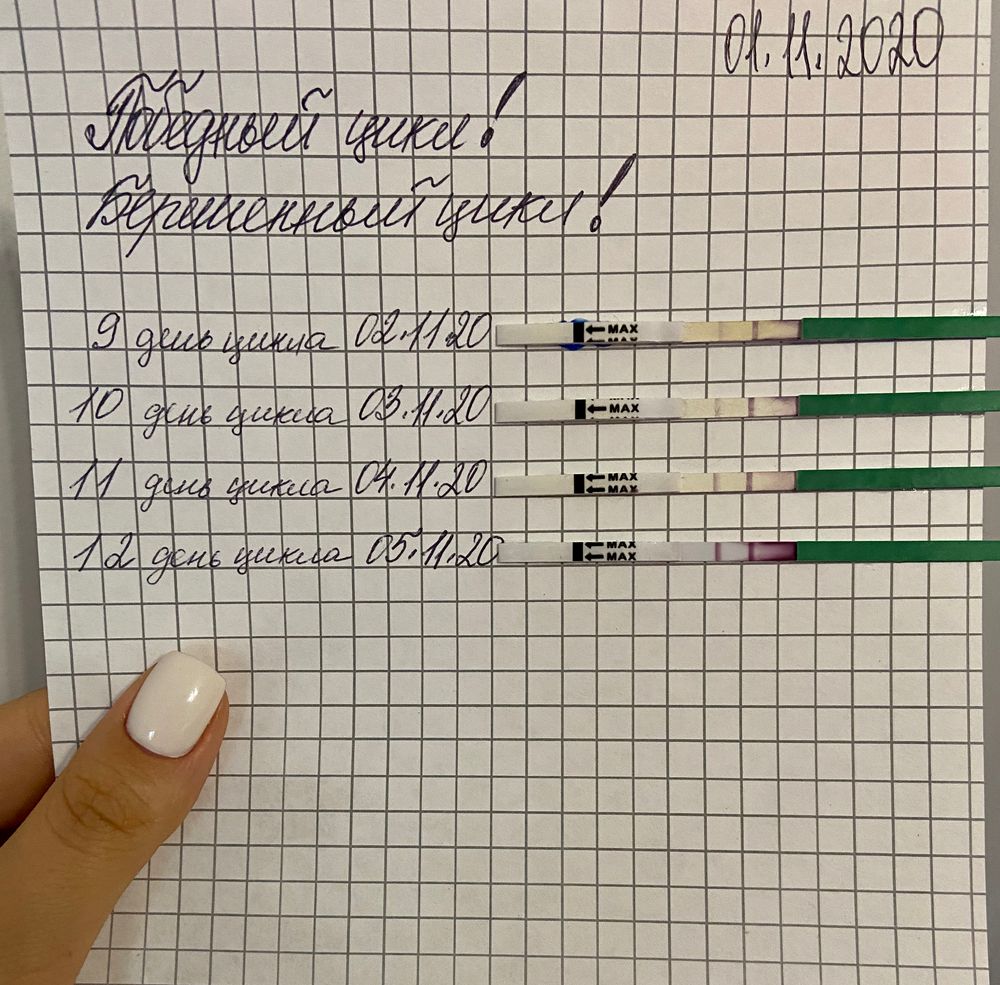 01.11.2020
Победный цикл!
Беременный цикл!
9 день цикла 02.11.20
← MAX
← MAX
10 день цикла 03.11.20
← MAX
11 день цикла 04.11.20
← MAX
← MAX
12 день цикла 05.11.20
← MAX
← MAX